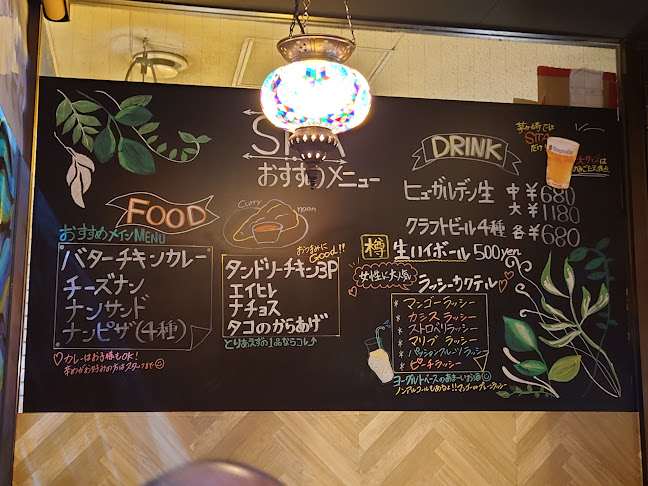 SITA
おすすめメニュー
FOOD
おすすめメインMENU
バターチキンカレー
チーズナン
ナンサンド
ナンピザ(4種)
♡カレーはお子様もOK!
辛めがお好みの方はスタッフまで
Curry
naan
おつまみに
Good!!
タンドリーチキン3P
エイヒレ
ナチョス
タコのからあげ
とりあえずの1品ならコレ
DRINK
茅ヶ崎では
SITA
だけ!
大サイズは
ヒューガルデン生 中¥680
大¥1180
クラフトビール4種 各¥680
樽 生ハイボール 500yen
女性に大人気
ラッシーカクテル♡
* マンゴーラッシー
* カシスラッシー
* ストロベリラッシー
* マリブ ラッシー
* パッションフルーツ ラッシー
* ピーチラッシー
ヨーグルトベースのあまーいお酒
ノンアルコールもあるよ!!マンゴーorプレーンラッシー